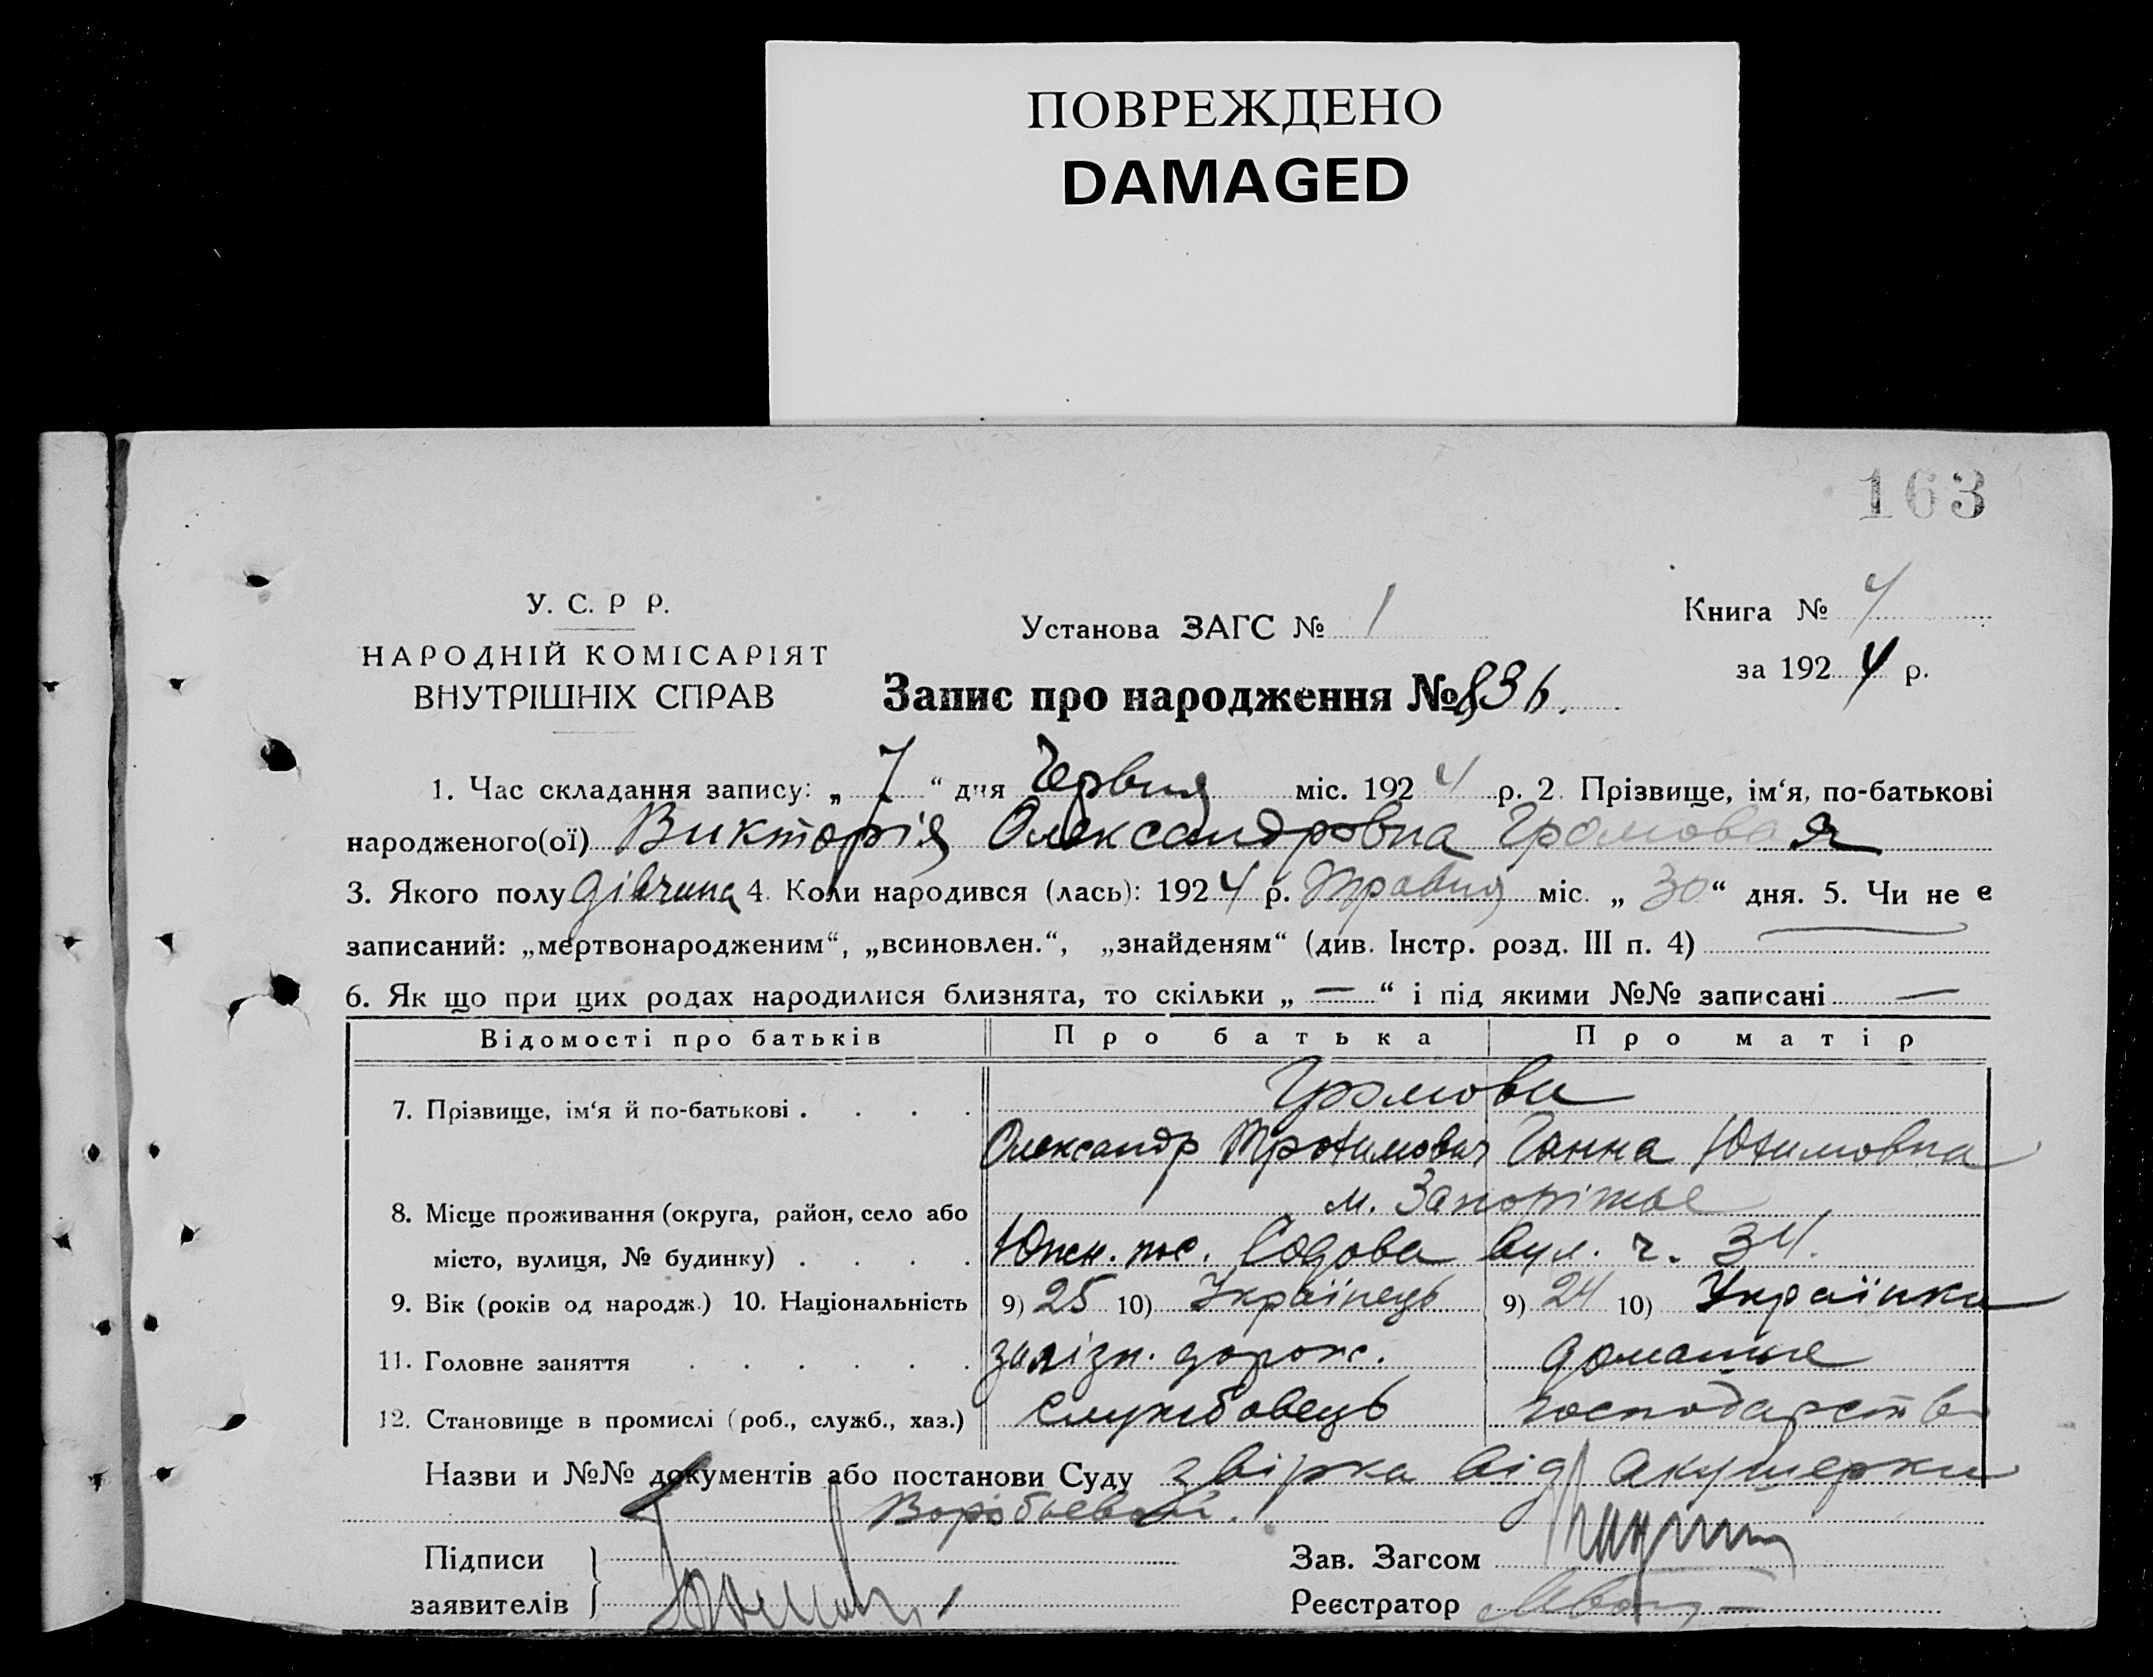 ПОВРЕЖДЕНО
DAMAGED
163
У. С. Р Р.
НАРОДНІЙ КОМІСАРІЯТ
ВНУТРІШНІХ СПРАВ
Установа ЗАГС № 1
Книга № 4
за 1924 р.
Запис про народження № 836.
1. Час складання запису: „ 7 “ дня Червня міс. 1924 р. 2. Прізвище, ім‘я, по-батькові
народженого(ої) Викторія Олександровна Громовая
3. Якого полу дівчина 4. Коли народився (лась): 1924 р. Травня міс. „ 30 “ дня. 5. Чи не є
записаний: „мертвонародженим“, „всиновлен.“, „знайденям“ (див. Інстр. розд. III п. 4) —
6. Як що при цих родах народилися близнята, то скільки „ — “ і під якими №№ записані —
Відомості про батьків Про батька Про матір
7. Прізвище, ім‘я й по-батькові . . . . Громови
Олександр Трохимович Ганна Юхимовна
8. Місце проживання (округа, район, село або м. Запоріжье
місто, вулиця, № будинку) . . . . Южн. пос. Садова вул. ч. 34.
9. Вік (років од народж.) 10. Національність 9) 25 10) Українець 9) 24 10) Українка
11. Головне заняття . . . . . . залізн. дорож. домашне
12. Становище в промислі (роб., служб., хаз.) службовець господарство
Назви и №№ документів або постанови Суду звірка від акушерки
Воробьевой.
Підписи
заявителів
Зав. Загсом
Реєстратор